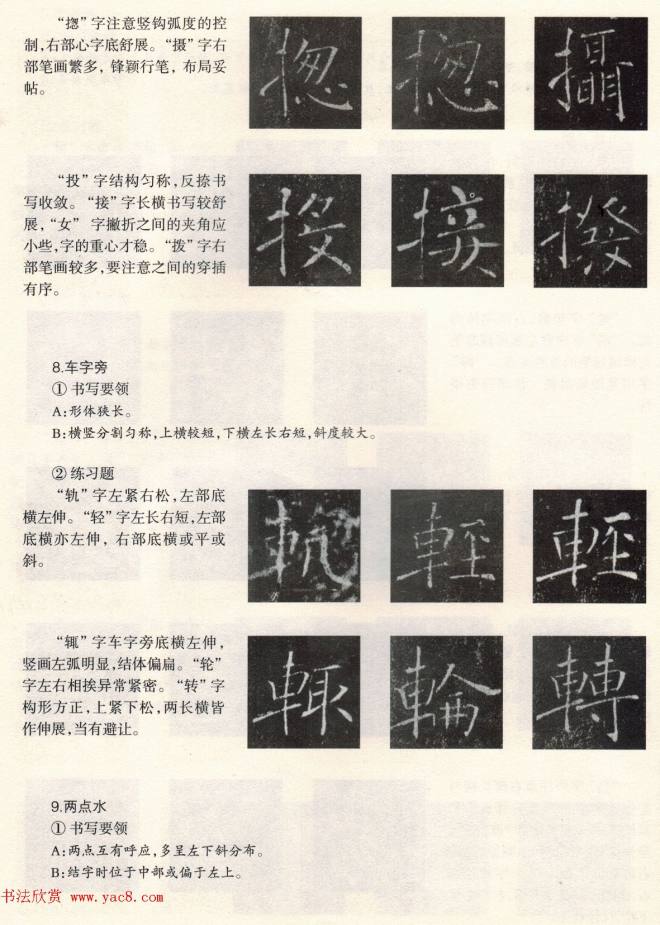 “揔”字注意竖钩弧度的控
制,右部心字底舒展。“摄”字右
部笔画繁多,锋颖行笔,布局妥
帖。
揔 揔 攝
“投”字结构匀称,反捺书
写收敛。“接”字长横书写较舒
展,“女”字撇折之间的夹角应
小些,字的重心才稳。“拨”字右
部笔画较多,要注意之间的穿插
有序。
投 接 撥
8.车字旁
① 书写要领
A:形体狭长。
B:横竖分割匀称,上横较短,下横左长右短,斜度较大。
② 练习题
“轨”字左紧右松,左部底
横左伸。“轻”字左长右短,左部
底横亦左伸,右部底横或平或
斜。
軌 輕 輕
“辄”字车字旁底横左伸,
竖画左弧明显,结体偏扁。“轮”
字左右相挨异常紧密。“转”字
构形方正,上紧下松,两长横皆
作伸展,当有避让。
輙 輪 轉
9.两点水
① 书写要领
A:两点互有呼应,多呈左下斜分布。
B:结字时位于中部或偏于左上。
书法欣赏 www.yac8.com